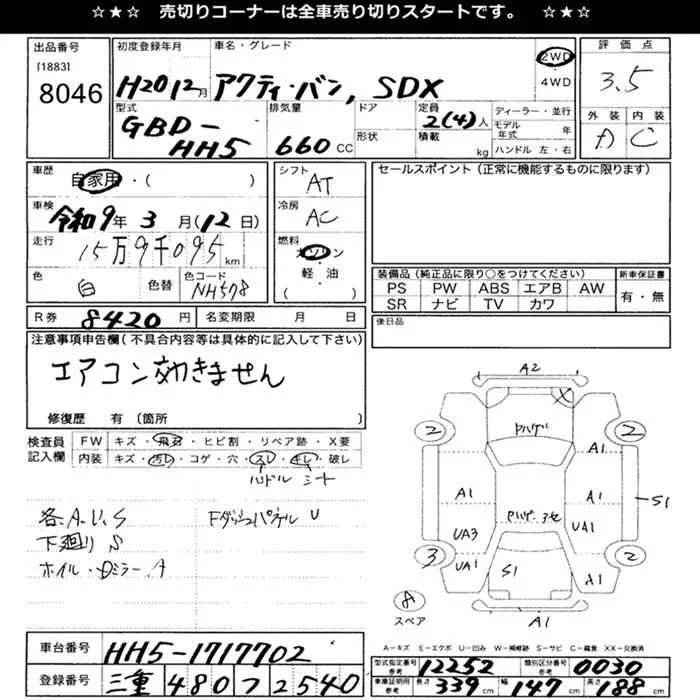 ☆★☆ 売切りコーナーは全車売り切りスタートです。 ☆★☆
出品番号 初度登録年月 車名・グレード 評価点
[1883] 8046 H20 12月 アクティ・バン, SDX 2WD 4WD 3.5
型式 排気量 ドア 定員 ディーラー・並行 外装 内装
GBD-HH5 660 CC 形状 2(4)人 積載 kg モデル年式 年 ハンドル 左・右 A C
車歴 自家用・( ) シフト AT セールスポイント (正常に機能するものに限ります)
車検 令和9年3月(12日) 冷房 AC
走行 15万9千095km 燃料 ガソリン・軽油 ( )
色 白 色替 色コード NH578
装備品 (純正品に限り○をつけてください) 新車保証書
PS PW ABS エアB AW 有・無
SR ナビ TV カワ
R券 8420円 名変期限 月 日 後日品
注意事項申告欄 (不具合内容等は具体的に記入して下さい)
エアコン効きません
修復歴 有 〔箇所 〕
検査員記入欄 FW キズ・飛石・ヒビ割・リペア跡・X要
内装 キズ・汚レ・コゲ・穴・スレ・キレ・破レ
ハンドル シート
各A.U.S Fダッシュパネル U
下廻り S
ホイル・Dミラー A
A2
X
ドハゲ
2 2
A1
A1 A1 S1
UA3 UA1
3 2
UA1 S1 A1
8
スペア
A1
A-キズ E-エクボ U-凹み W-補修跡 S-サビ C-腐食 XX-交換済
車台番号 HH5-1717702
登録番号 三重 480 フ 2540
型式指定番号 参考 12252 類別区分番号 参考 0030
車庫証明用 参考 長さ 339cm 幅 147cm 高さ 188cm